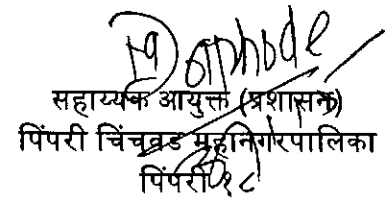 सहाय्यक आयुक्त (प्रशासन)
पिंपरी चिंचवड महनिगरपालिका
पिंपरी १८